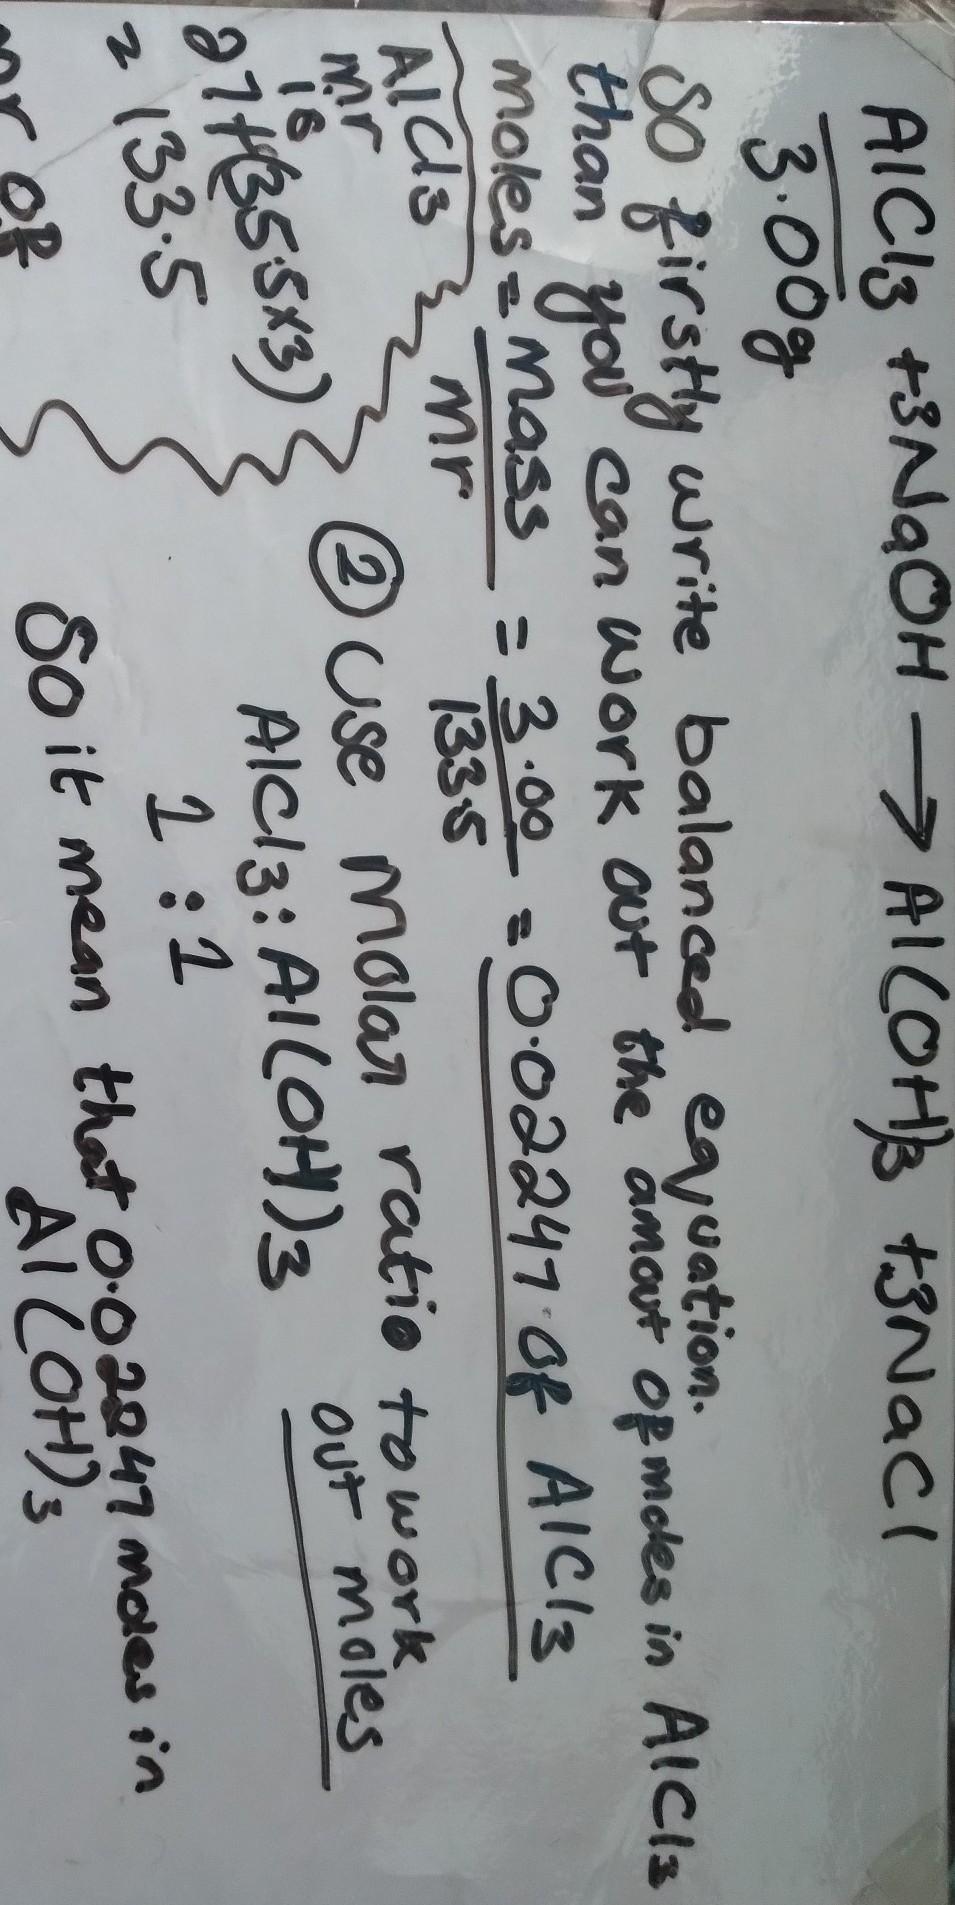 AlCl3 +3NaOH → Al(OH)3 +3NaCl
3.00g
So firstly write balanced equation.
than you can work out the amout of moles in AlCl3
moles = mass = 3.00 = 0.02247 of AlCl3
Mr 133.5
AlCl3
Mr
is
27+(35.5x3)
= 133.5
② Use molar ratio to work
out moles
AlCl3 : Al(OH)3
1 : 1
So it mean that 0.02247 moles in
Al(OH)3
Mr of